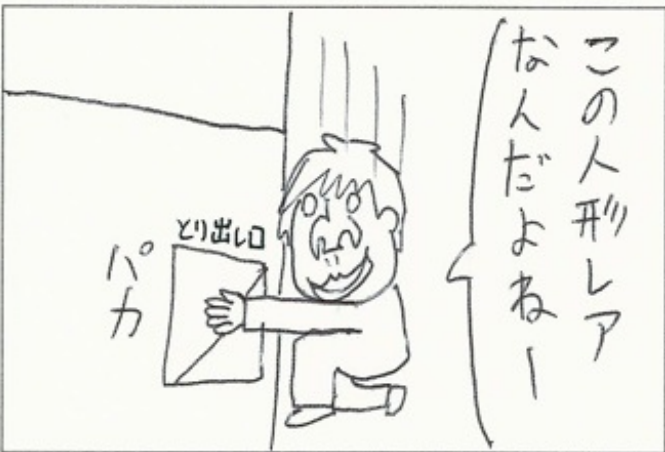 この人形レア
なんだよねー
とり出し口
パカ